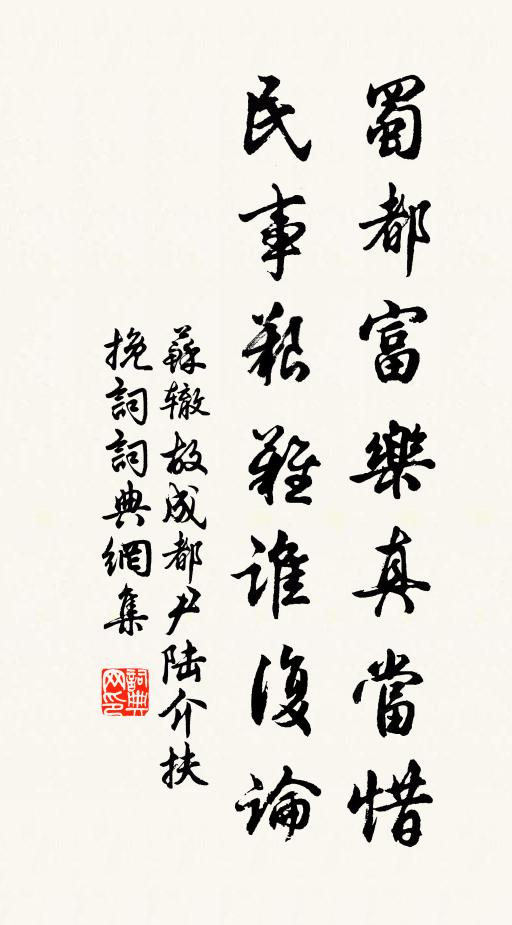 蜀都富樂真當惜
民事艱難誰復論
蘇辙故成都尹陆介扶
挽詞詞典網集
詞典网印